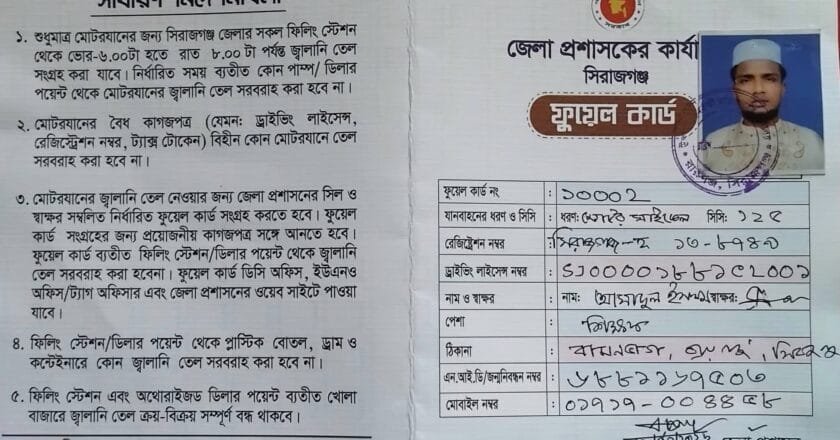 সাধারণ নির্দেশাবলী
১. শুধুমাত্র মোটরযানের জন্য সিরাজগঞ্জ জেলার সকল ফিলিং স্টেশন
থেকে ভোর-৬.০০টা হতে রাত ৮.০০ টা পর্যন্ত জ্বালানি তেল
সংগ্রহ করা যাবে। নির্ধারিত সময় ব্যতীত কোন পাম্প/ ডিলার
পয়েন্ট থেকে মোটরযানের জ্বালানি তেল সরবরাহ করা হবে না।
২. মোটরযানের বৈধ কাগজপত্র (যেমন: ড্রাইভিং লাইসেন্স,
রেজিস্ট্রেশন নম্বর, ট্যাক্স টোকেন) বিহীন কোন মোটরযানে তেল
সরবরাহ করা হবে না।
৩. মোটরযানের জ্বালানি তেল নেওয়ার জন্য জেলা প্রশাসনের সিল ও
স্বাক্ষর সম্বলিত নির্ধারিত ফুয়েল কার্ড সংগ্রহ করতে হবে। ফুয়েল
কার্ড সংগ্রহের জন্য প্রয়োজনীয় কাগজপত্র সঙ্গে আনতে হবে।
ফুয়েল কার্ড ব্যতীত ফিলিং স্টেশন/ডিলার পয়েন্ট থেকে জ্বালানি
তেল সরবরাহ করা হবেনা। ফুয়েল কার্ড ডিসি অফিস, ইউএনও
অফিস/ট্যাগ অফিসার এবং জেলা প্রশাসনের ওয়েব সাইটে পাওয়া
যাবে।
৪. ফিলিং স্টেশন/ডিলার পয়েন্ট থেকে প্লাস্টিক বোতল, ড্রাম ও
কন্টেইনারে কোন জ্বালানি তেল সরবরাহ করা হবে না।
৫. ফিলিং স্টেশন এবং অথোরাইজড ডিলার পয়েন্ট ব্যতীত খোলা
বাজারে জ্বালানি তেল ক্রয়-বিক্রয় সম্পূর্ণ বন্ধ থাকবে।
জেলা প্রশাসকের কার্যা
সিরাজগঞ্জ
ফুয়েল কার্ড
ফুয়েল কার্ড নং : ১০০০২
যানবাহনের ধরণ ও সিসি : ধরণ: মোটর সাইকেল সিসি: ১২৫
রেজিস্ট্রেশন নম্বর : সিরাজগঞ্জ-হ
ড্রাইভিং লাইসেন্স নম্বর :
নাম ও স্বাক্ষর : নাম: আসাদুল ইসলাম স্বাক্ষর:
পেশা :
ঠিকানা :
এন.আই.ডি/জন্মনিবন্ধন নম্বর :
মোবাইল নম্বর :